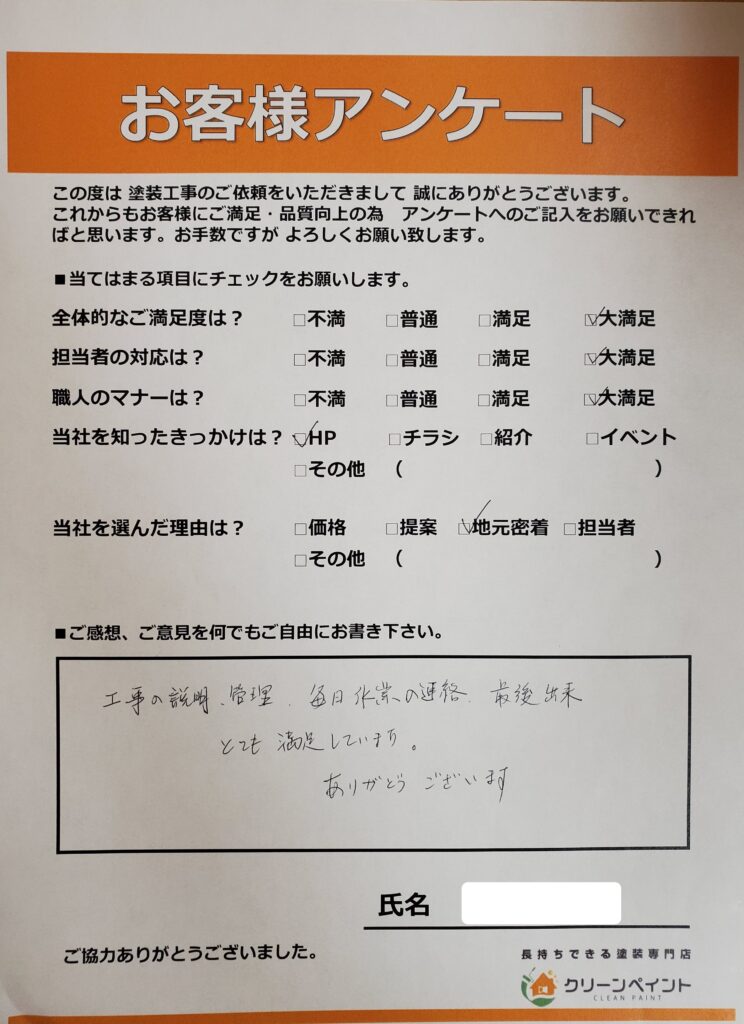 お客様アンケート
この度は 塗装工事のご依頼をいただきまして 誠にありがとうございます。
これからもお客様にご満足・品質向上の為　アンケートへのご記入をお願いできれ
ばと思います。お手数ですが よろしくお願い致します。
■当てはまる項目にチェックをお願いします。
全体的なご満足度は？ □不満 □普通 □満足 ☑大満足
担当者の対応は？ □不満 □普通 □満足 ☑大満足
職人のマナーは？ □不満 □普通 □満足 ☑大満足
当社を知ったきっかけは？ ☑HP □チラシ □紹介 □イベント
□その他 （ ）
当社を選んだ理由は？ □価格 □提案 ☑地元密着 □担当者
□その他 （ ）
■ご感想、ご意見を何でもご自由にお書き下さい。
工事の説明、管理、毎日作業の連絡、最後出来
とても満足しています。
ありがとうございます
氏名
ご協力ありがとうございました。
長持ちできる塗装専門店
クリーンペイント
CLEAN PAINT